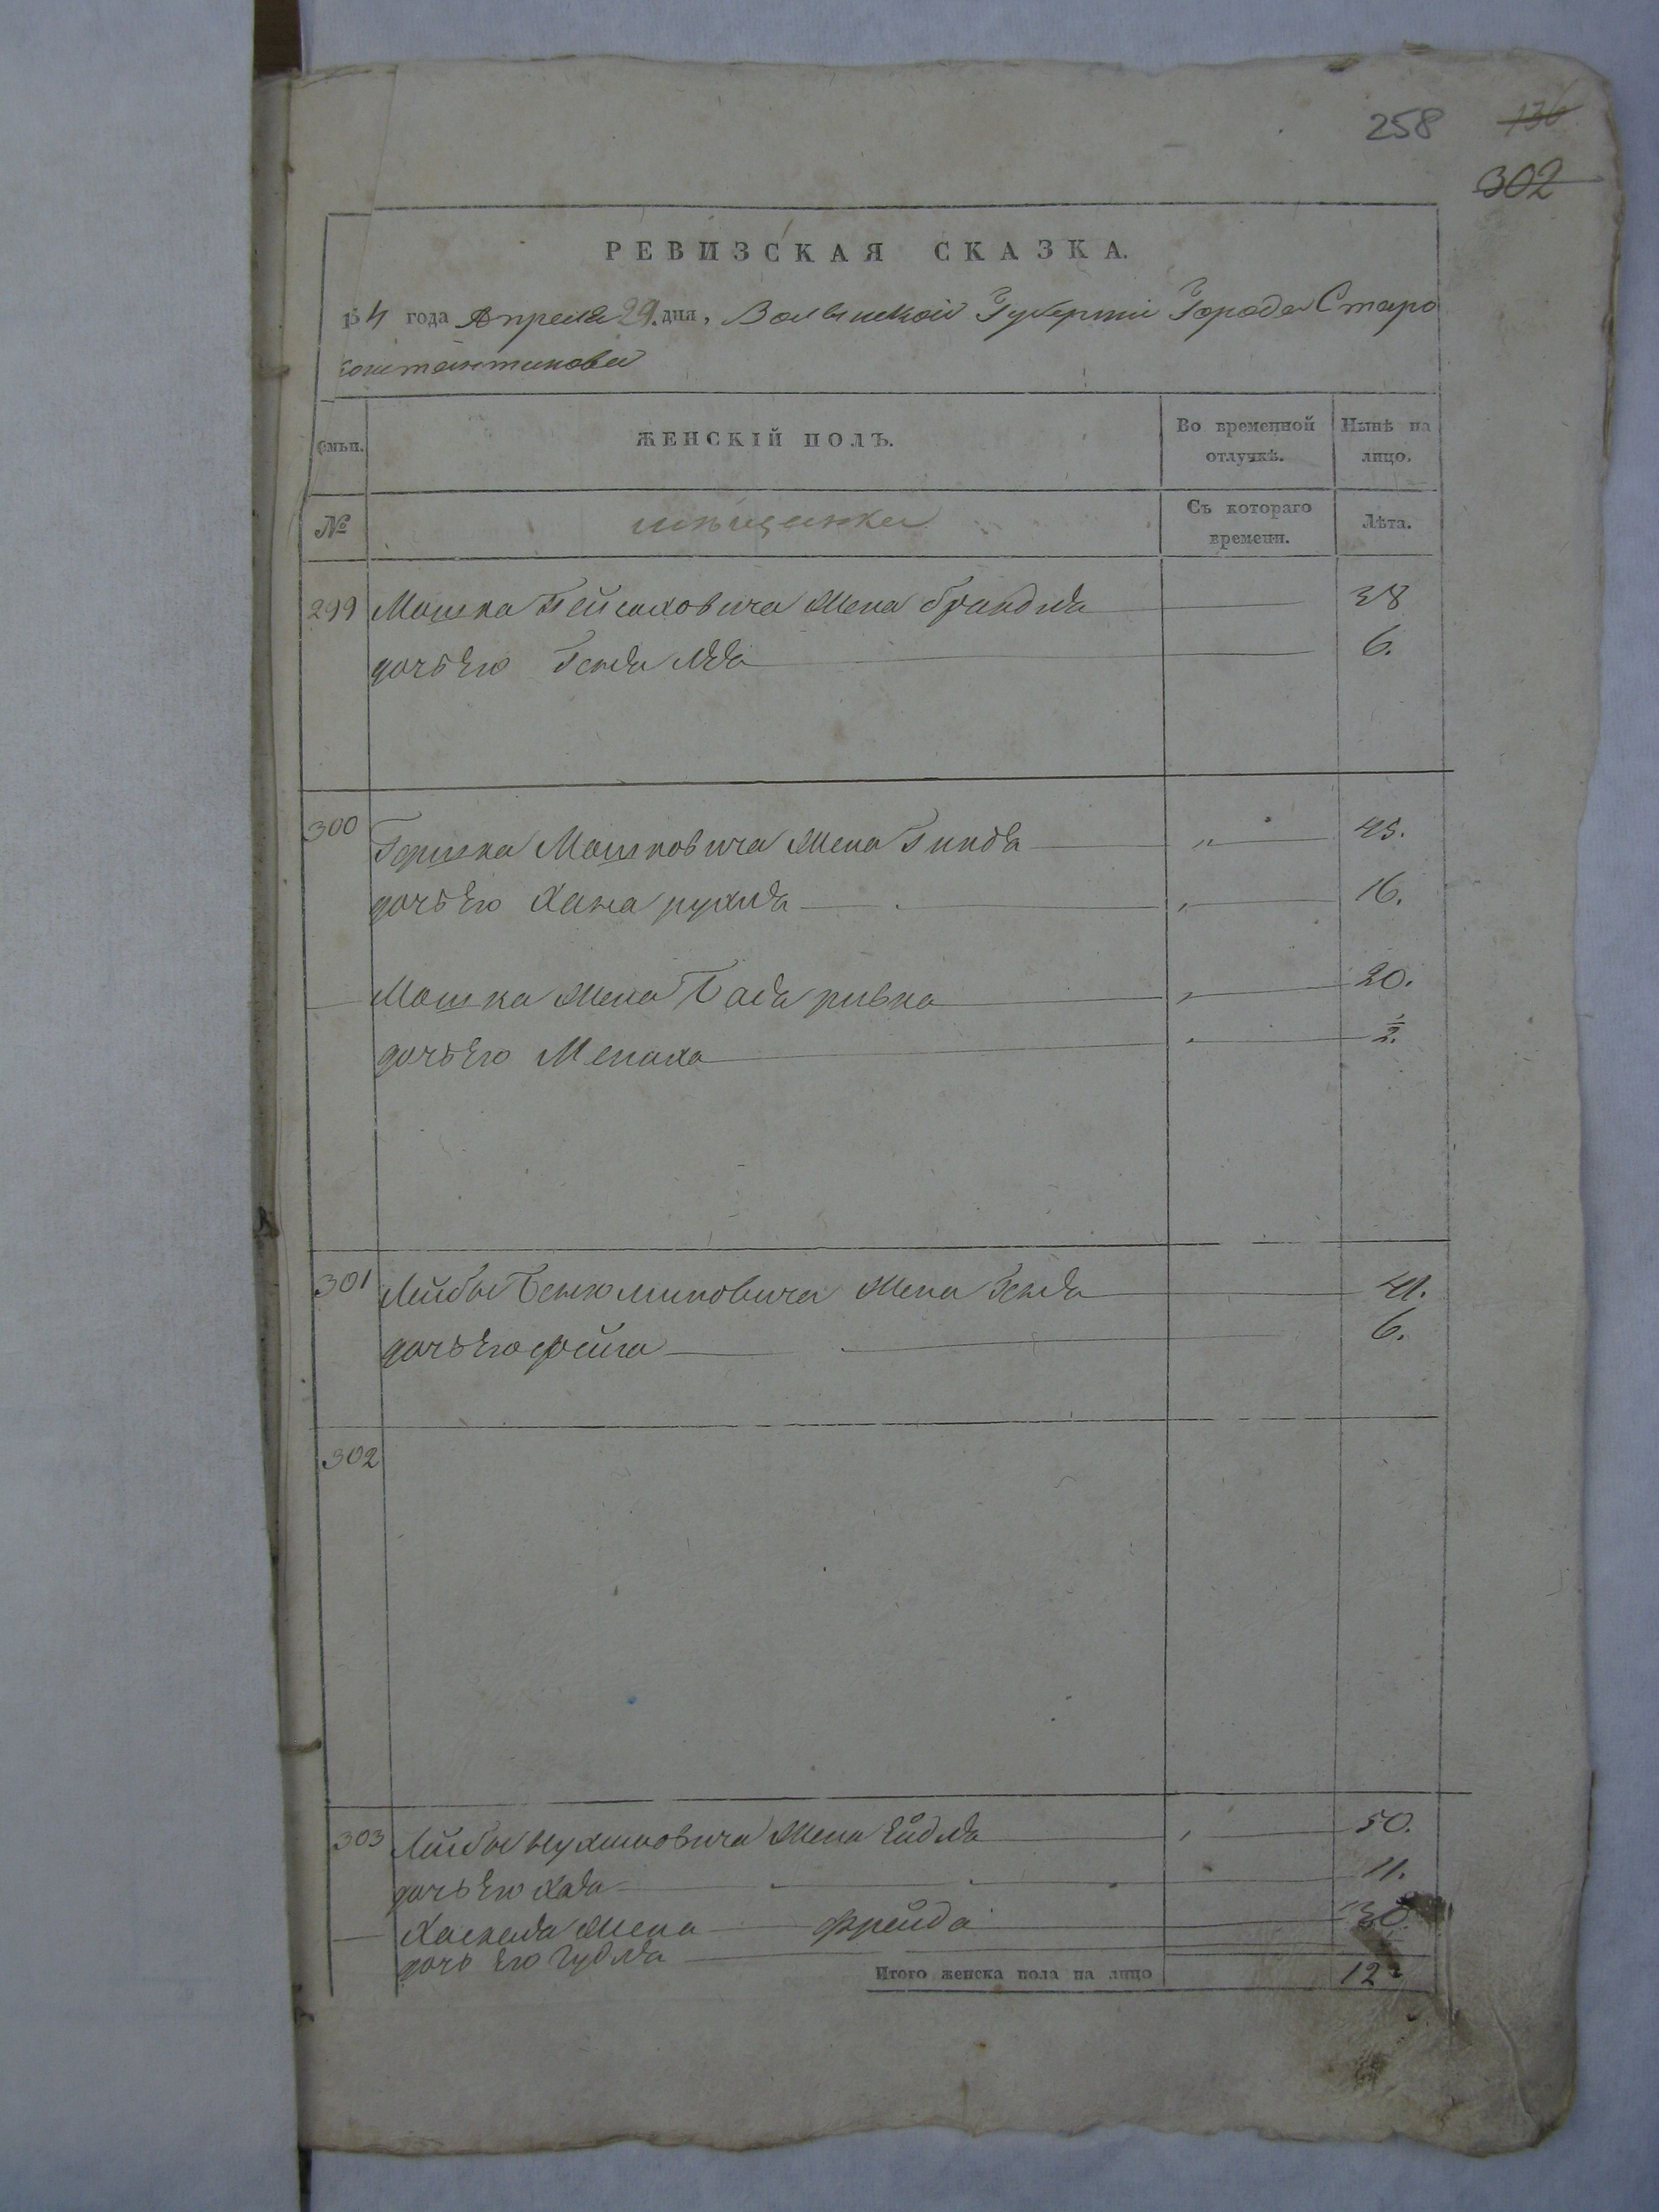 258 136
302
РЕВИЗСКАЯ СКАЗКА.
4 года Апреля 29. дня, Волынской Губернии Города Старо
константинова
Семьи. ЖЕНСКІЙ ПОЛЪ. Во временной отлучкѣ. Нынѣ на лицо.
№ мѣщанки Съ котораго времени. Лѣта.
299 Мошка Пейсаховича Жена брандля 38
дочь Его Гендля 6.
300 Гершка Мошковича Жена Гинда 45.
дочь Его Хана рухля 16.
Мошка Жена ривка 20.
дочь Его Мениха ½.
301 Лейбы Бенюминовича Жена Гендя 41.
дочь Его фейга 6.
302
303 Лейбы Нухимовича Жена Ейдля 50.
дочь Его Хая 11.
Хаскеля Жена Фрейда 30.
дочь Его
Итого женска пола на лицо 12